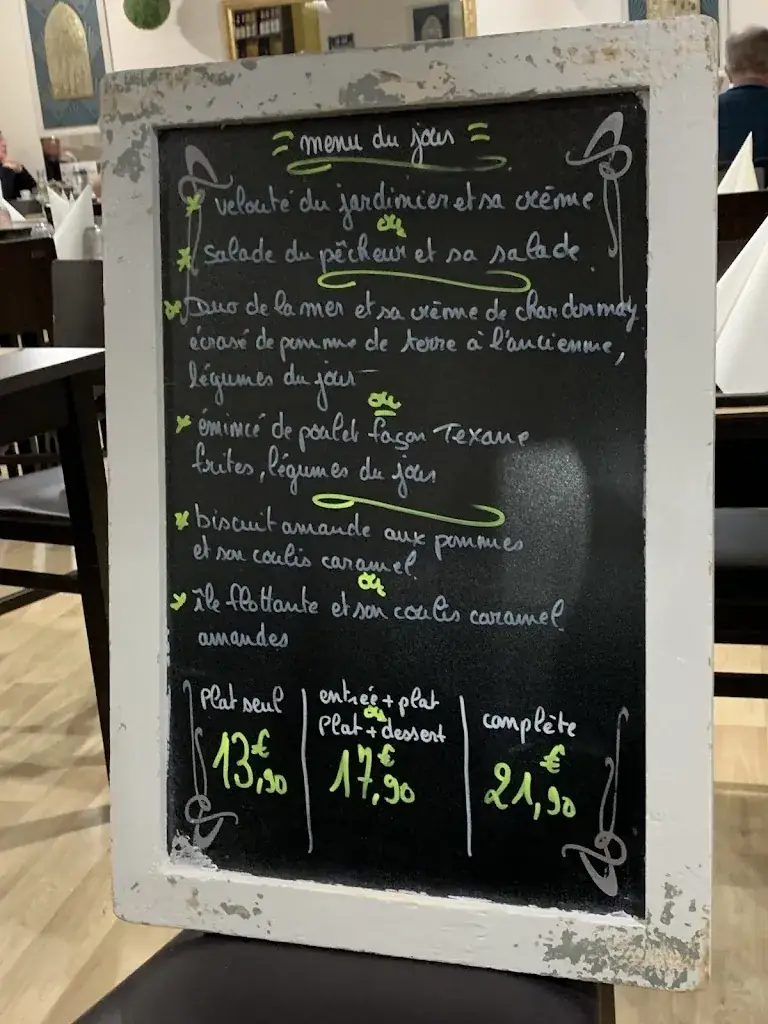 = menu du jour =
* velouté du jardinier et sa crème
ou
* Salade du pêcheur et sa salade
* Duo de la mer et sa crème de chardonnay
écrasé de pomme de terre à l'ancienne,
légumes du jour
ou
* émincé de poulet façon Texane
frites, légumes du jour
* biscuit amande aux pommes
et son coulis caramel
ou
* île flottante et son coulis caramel
amandes
Plat seul
13,90€
entrée + plat
ou
Plat + dessert
17,90€
complète
21,90€